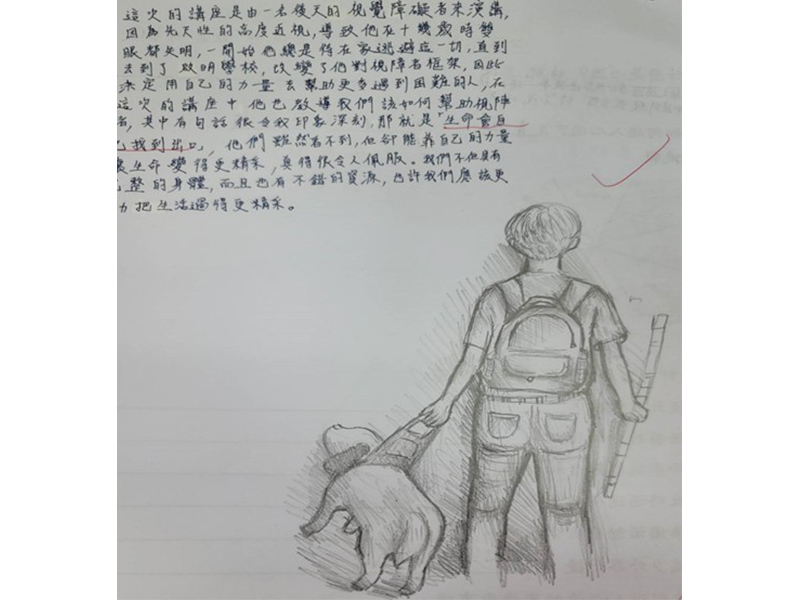 這次的講座是由一名後天的視覺障礙者來演講,
因為先天性的高度近視,導致他在十幾歲時雙
眼都失明,一開始他總是待在家逃避這一切,直到
去到了啟明學校,改變了他對視障者框架,因此
決定用自己的力量去幫助更多遇到困難的人,在
這次的講座中他也教導我們該如何幫助視障
者,其中有句話很令我印象深刻,那就是「生命會自
己找到出口」,他們雖然看不到,但卻能靠自己的力量
讓生命變得更精采,真得很令人佩服。我們不但具有
完整的身體,而且也有不錯的資源,也許我們應該更
力把生活過得更精采。